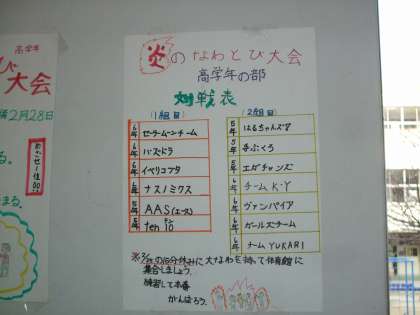 高学年
び
大会
2月28日
炎のなわとび大会
高学年の部
対戦表
(1組目)
6年 セーラームーンチーム
6年 パズドラ
6年 イベリコブタ
6年 ナスノミクス
5年 AAS(エース)
6年 ten10
(2組目)
5年 はるちゃんズ
5年 手ぶくろ
5年 エガチャンズ
6年 チームK·Y
6年 ヴァンパイア
6年 ガールズチーム
6年 チームYUKARI
休みに大なわを持って体育館に
集合しましょう。
練習して本番
がんばろう。